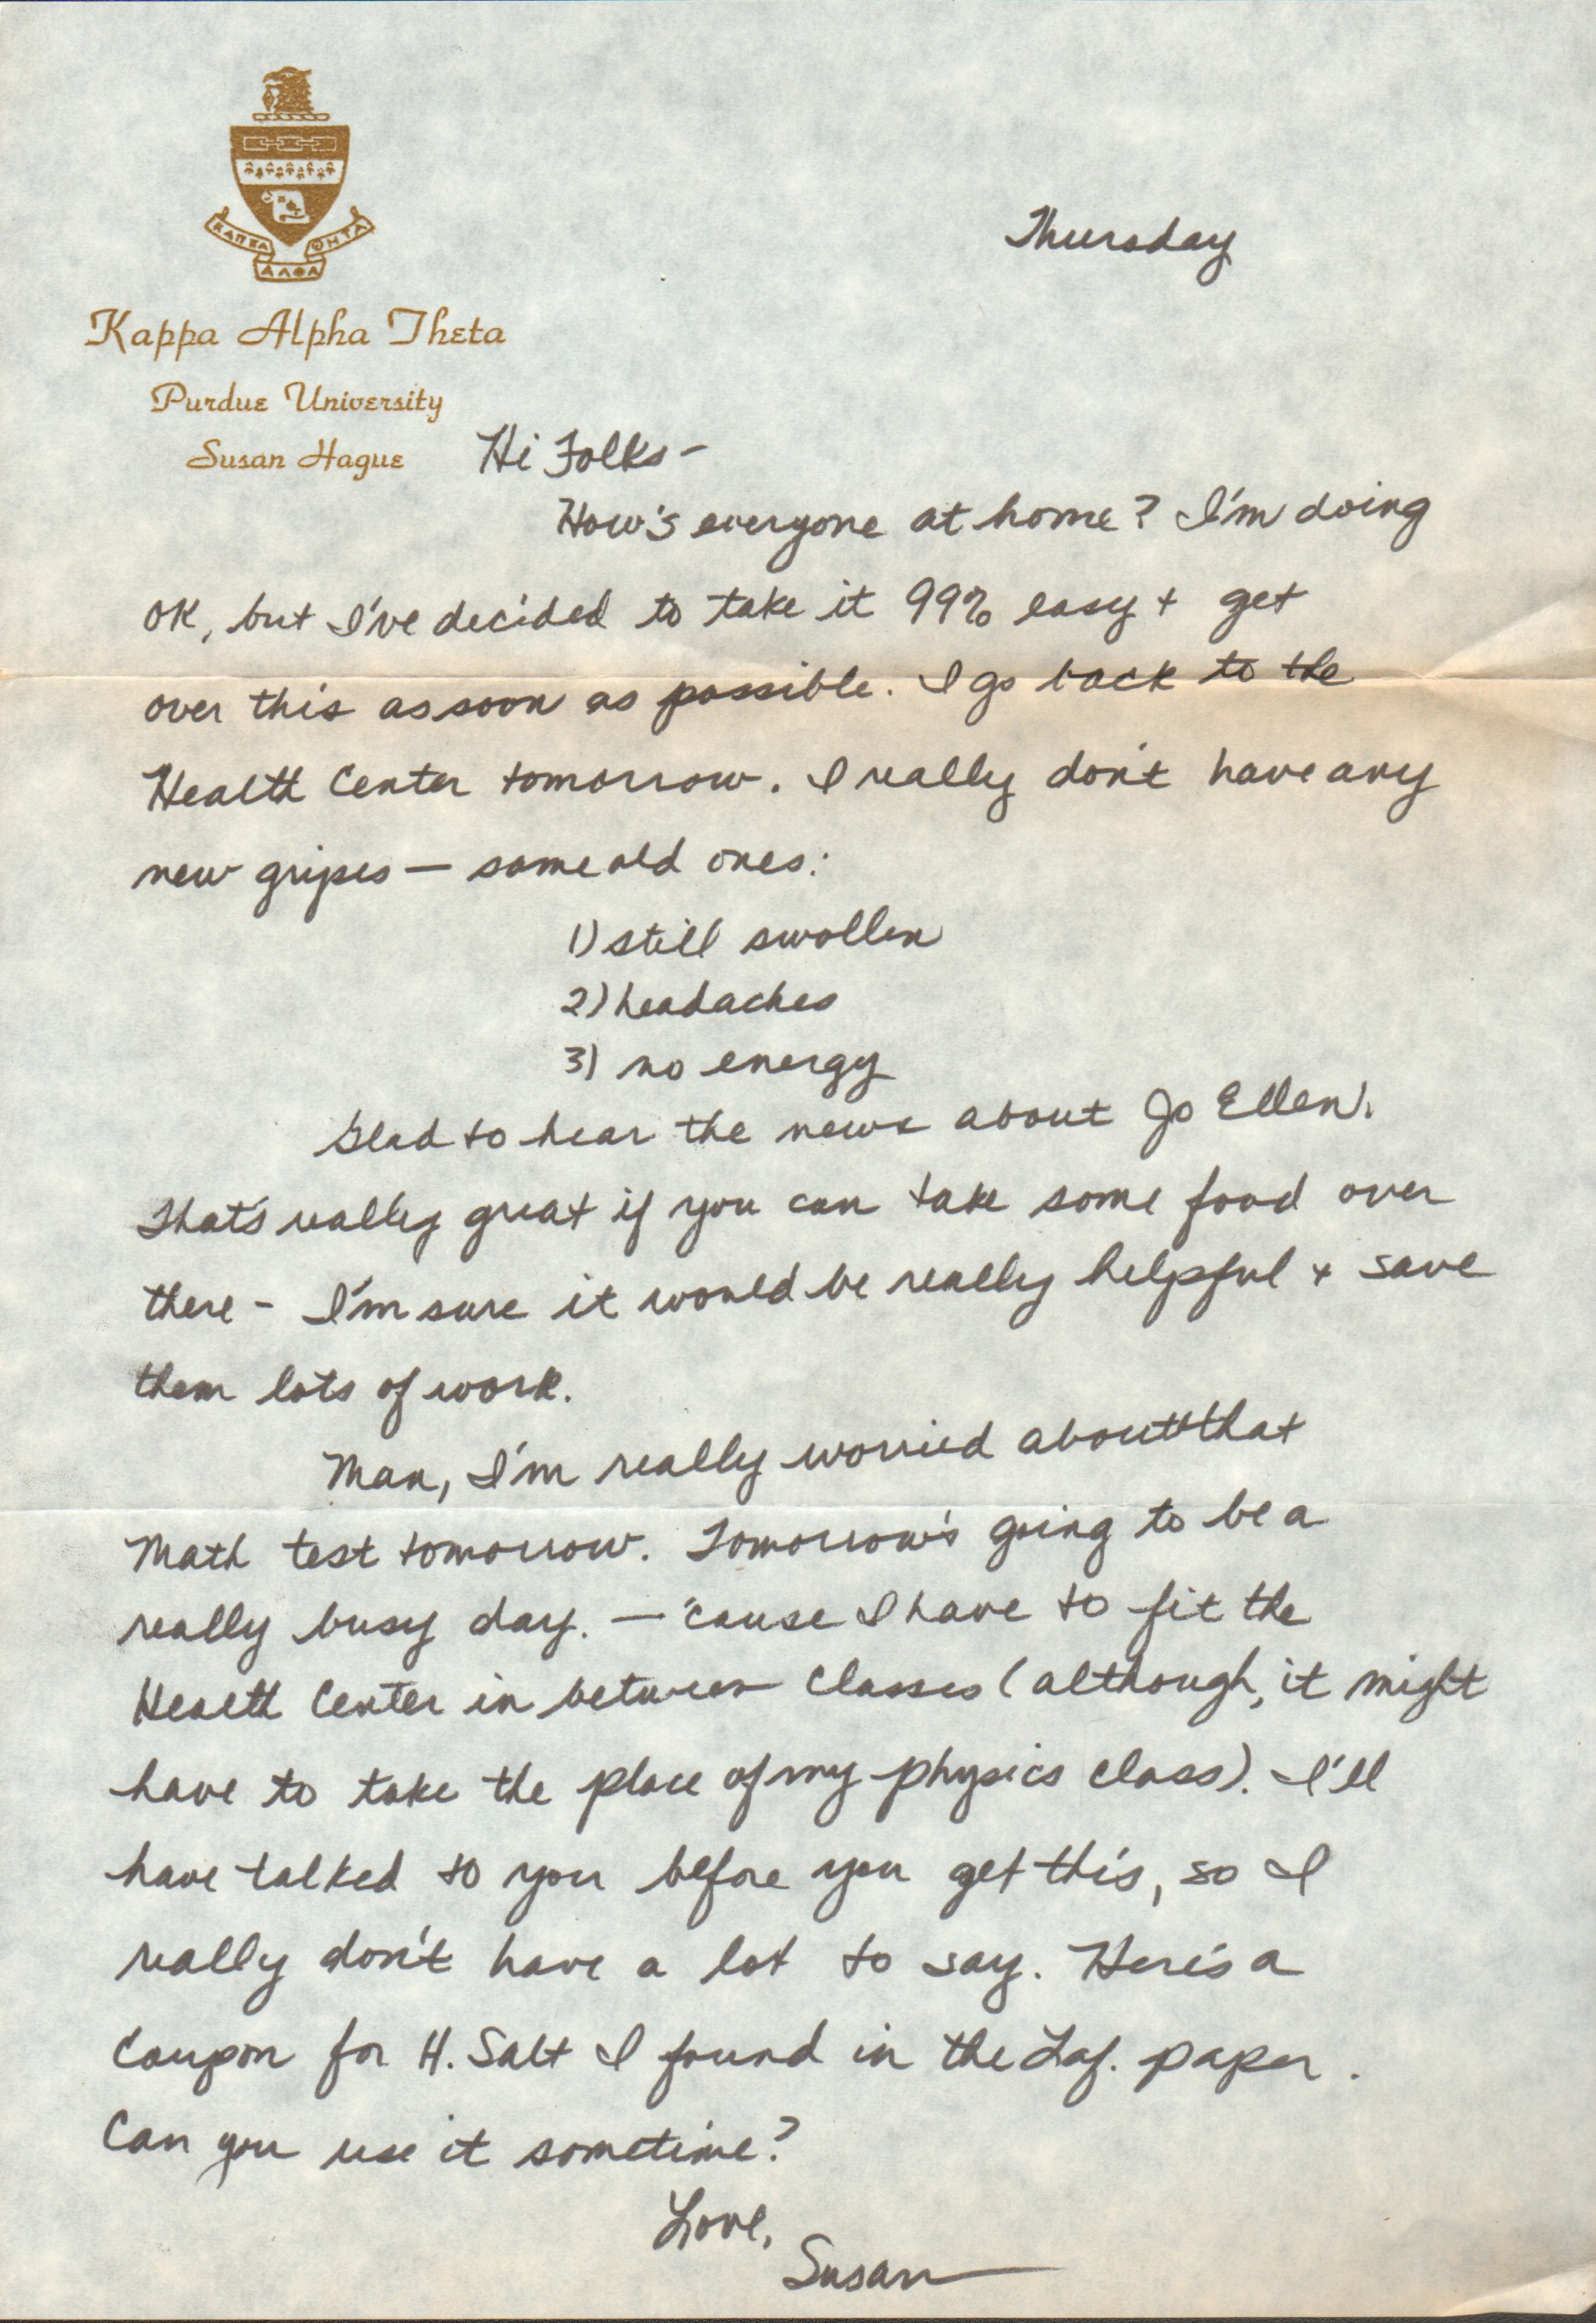 ΚΑΠΠΑ ΑΛΦΑ ΘΗΤΑ
Thursday
Kappa Alpha Theta
Purdue University
Susan Hague
Hi Folks –
How's everyone at home? I'm doing
OK, but I've decided to take it 99% easy + get
over this as soon as possible. I go back to the
Health Center tomorrow. I really don't have any
new gripes — same old ones:
1) still swollen
2) headaches
3) no energy
Glad to hear the news about Jo Ellen.
That's really great if you can take some food over
there – I'm sure it would be really helpful + save
them lots of work.
Man, I'm really worried about that
Math test tomorrow. Tomorrow's going to be a
really busy day. — 'cause I have to fit the
Health Center in between classes (although, it might
have to take the place of my physics class). I'll
have talked to you before you get this, so I
really don't have a lot to say. Here's a
coupon for H. Salt I found in the Laf. paper.
Can you use it sometime?
Love,
Susan